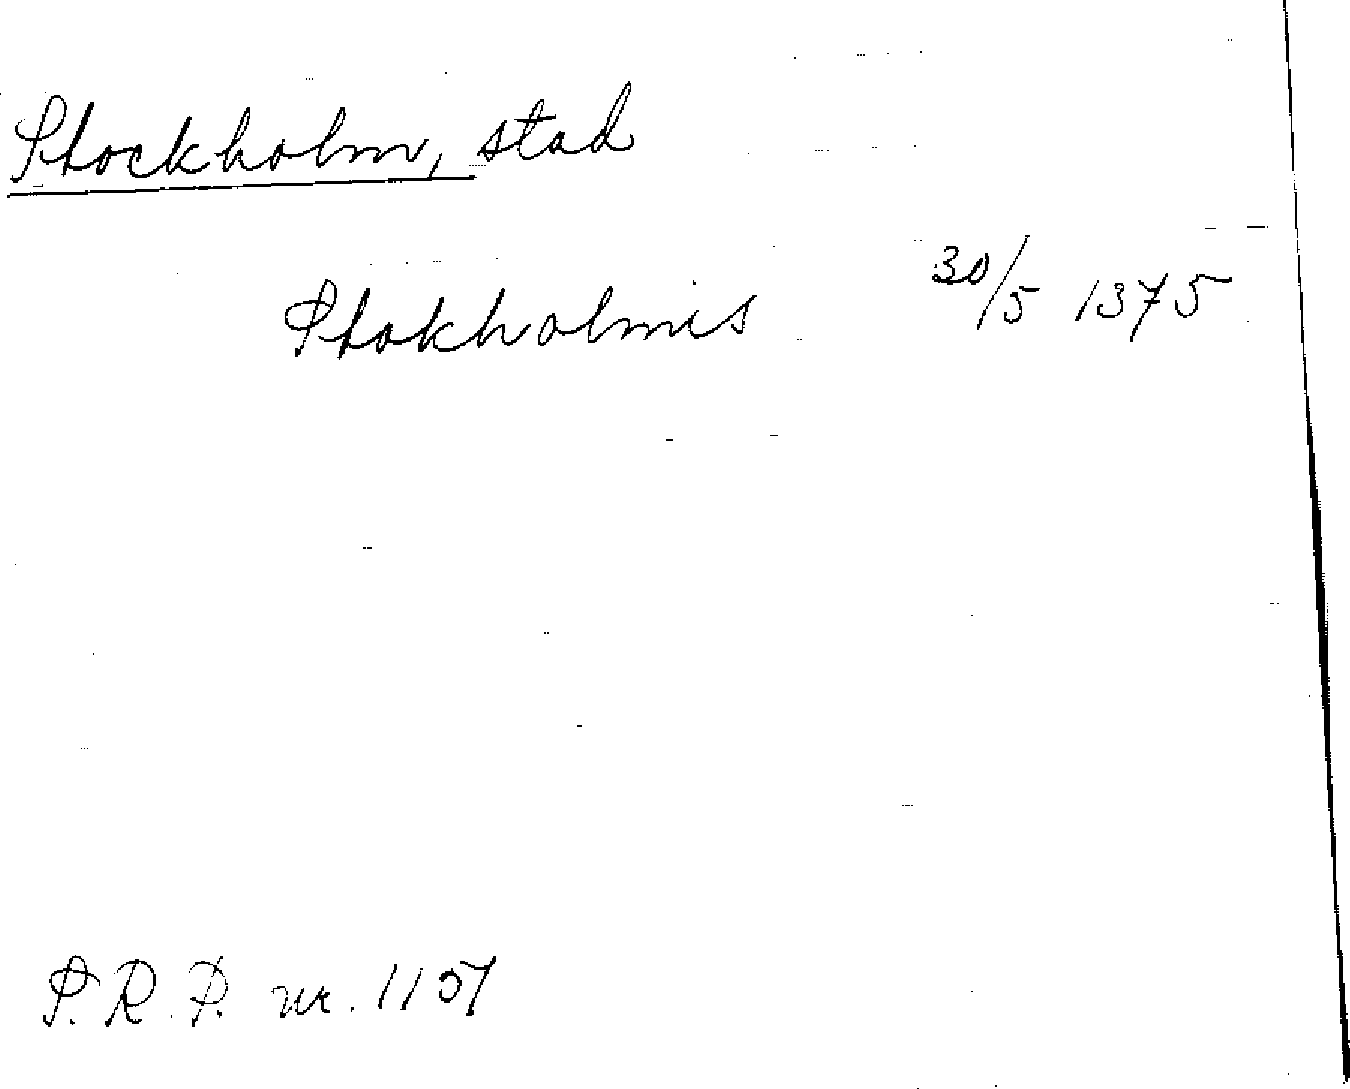 Stockholm, stad
Stokholmis 30/5 1375
S.R.P. nr. 1107